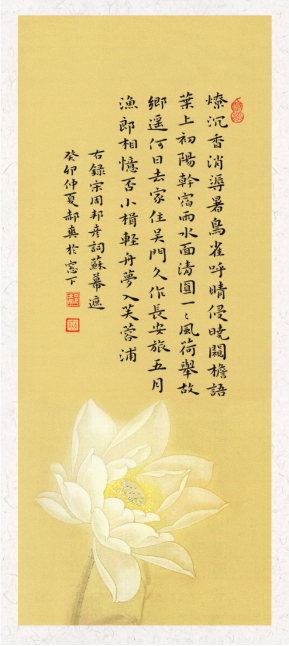 燎沉香消溽暑鳥雀呼晴侵曉闚檐語
葉上初陽幹宿雨水面清圓一〻風荷舉故
鄉遥何日去家住吴門久作長安旅五月
漁郎相憶否小楫輕舟夢入芙蓉浦
右錄宗周邦彦詞蘇幕遮
癸卯仲夏郝爽於窓下